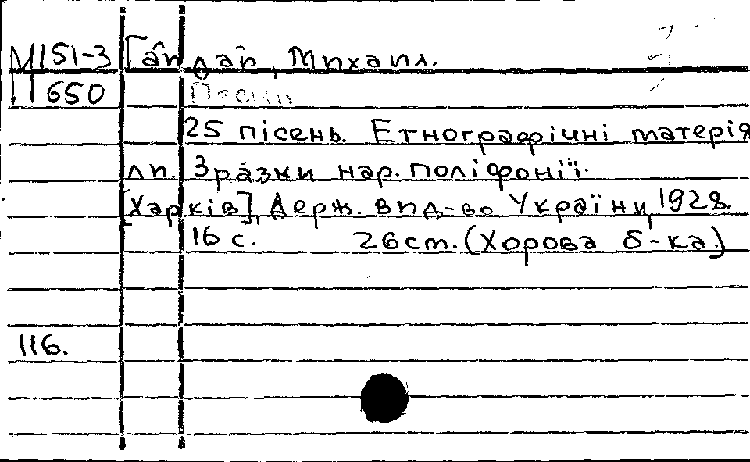 М151-3 Гайдай, Михайл.
П650 Пісни
25 пісень. Етнографічні матерія
ли. Зразки нар. поліфонії.
[Харків], Держ. вид-во України, 1928.
16 с. 26cm. (Хорова б-ка.)
116.